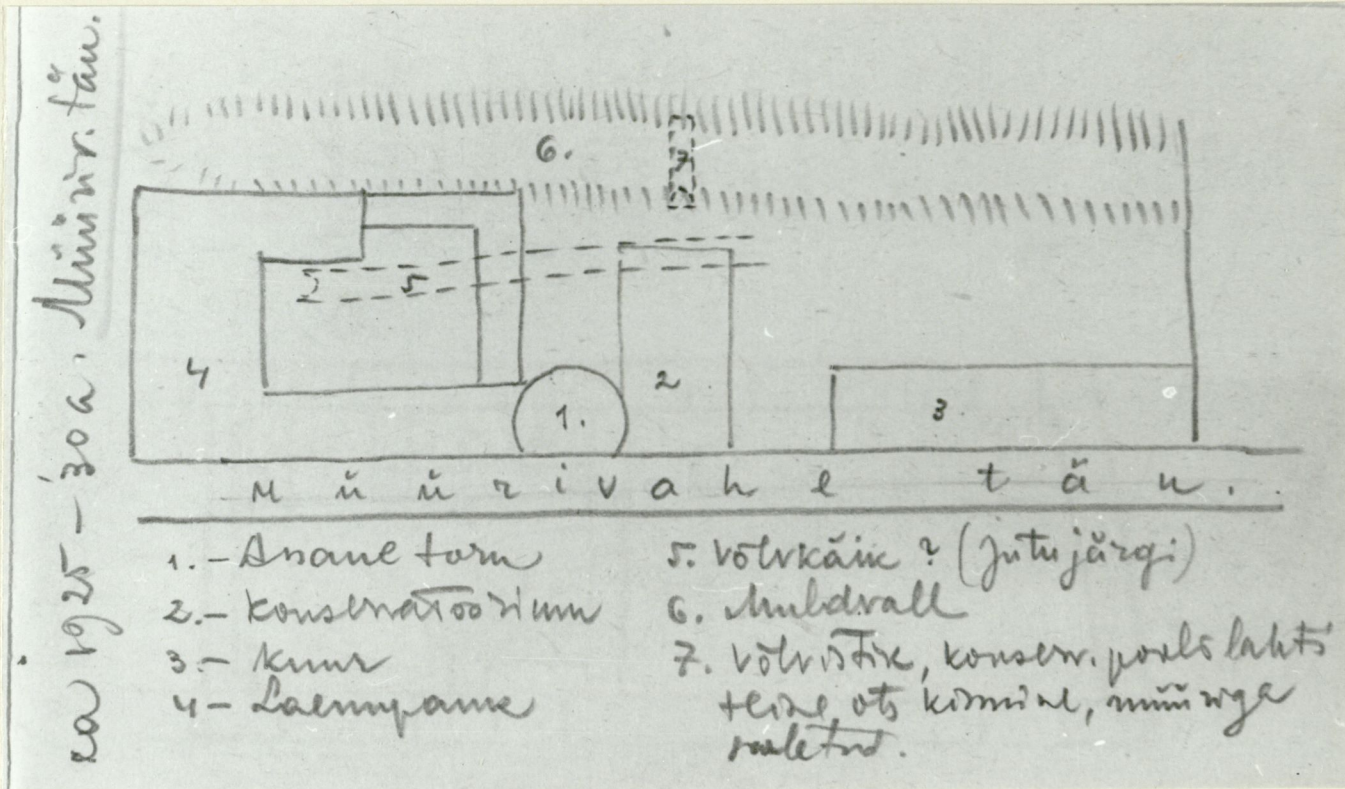 ca 1925-30 a. Müüriv. tän.
6.
7
5
4
1.
2
3.
Müürivahe tän.
1.- Assaue torn
2.- Konservatoorium
3.- Kuur
4 - Laenupank
5. Võlvkäik ? (jutu järgi)
6. Muldvall
7. Võlvistik, konserv. poolt lahti
teine ots kinnine, müüriga
suletud.